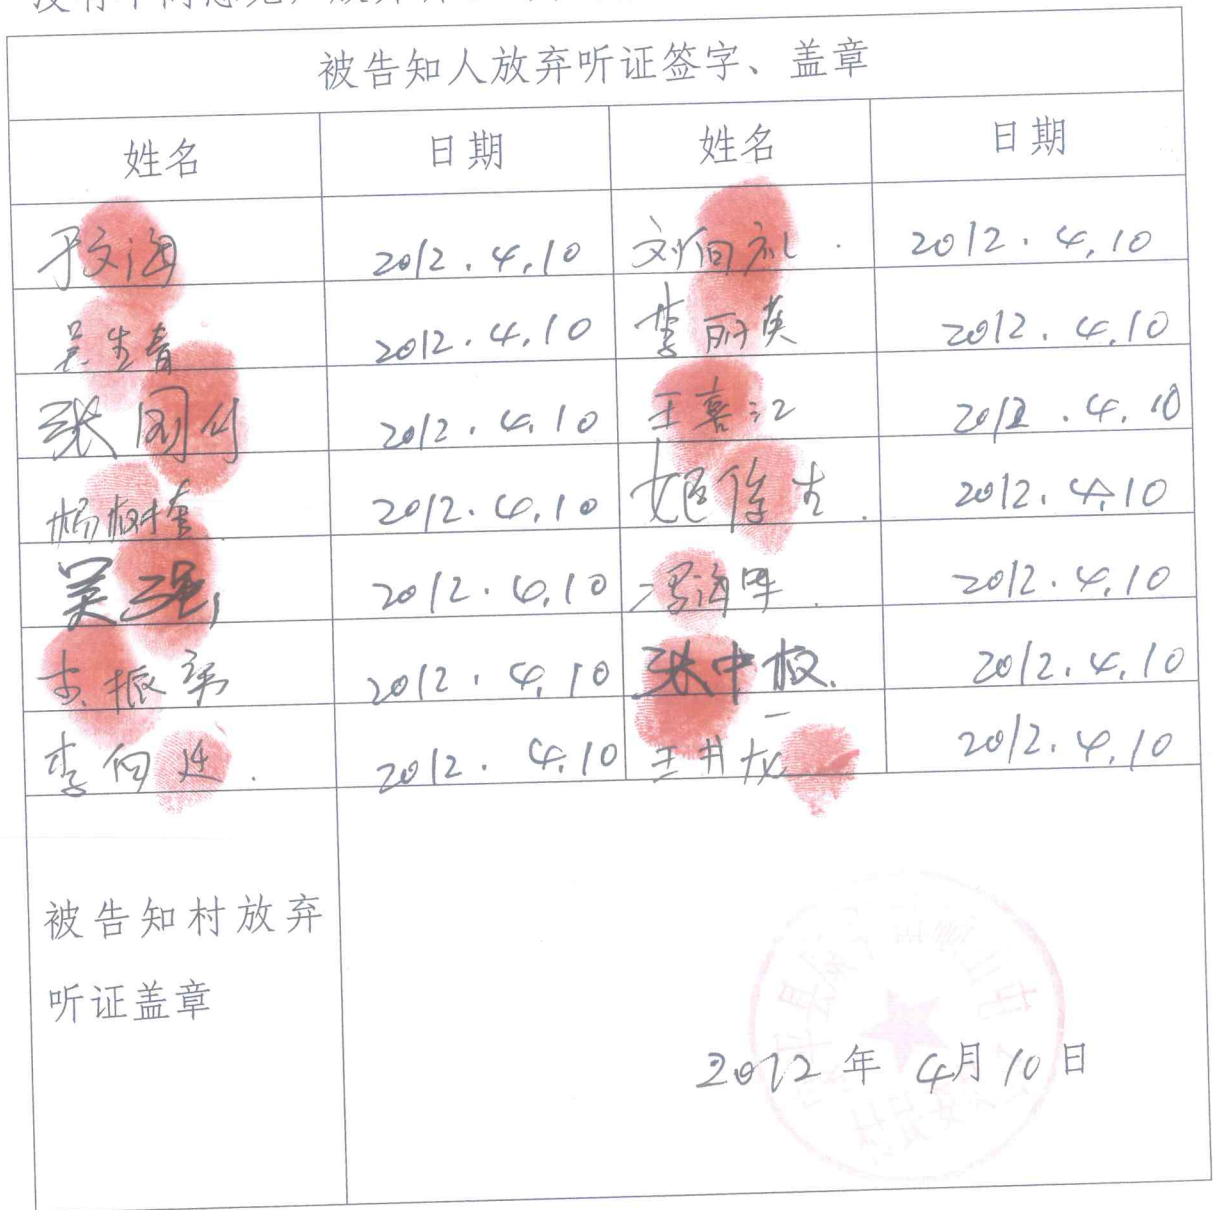 被告知人放弃听证签字、盖章
姓名 日期 姓名 日期
文海 2012.4.10 刘向礼 2012.4.10
吴生青 2012.4.10 李丽英 2012.4.10
张国 2012.4.10 王喜江 2012.4.10
杨树奎 2012.4.10 姬俊 2012.4.10
吴强 2012.4.10 冯海军 2012.4.10
振 2012.4.10 张中权 2012.4.10
李向廷 2012.4.10 王井龙 2012.4.10
被告知村放弃
听证盖章
2012年4月10日